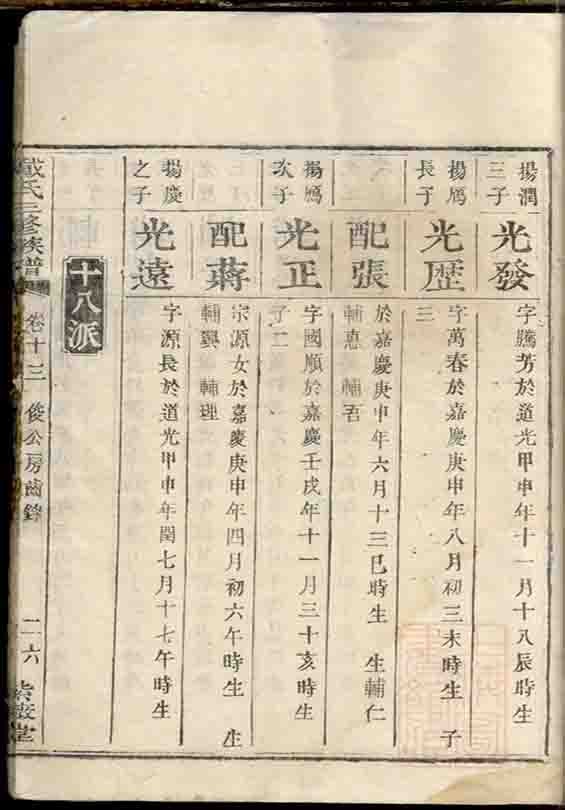 揚潤
三子
光發
字騰芳於道光甲申年十一月十八辰時生
揚鴈
長子
光歷
字萬春於嘉慶庚申年八月初三未時生 子
三
配張
於嘉慶庚申年六月十三巳時生 生輔仁
輔惠 輔吾
揚鴈
次子
光正
字國順於嘉慶壬戌年十一月三十亥時生
子二
配蔣
宗源女於嘉慶庚申年四月初六午時生 生
輔興 輔理
揚慶
之子
光遠
字源長於道光甲申年閏七月十七午時生
十八派
戴氏三修族譜
卷十三 俊公房齒錄
二六
紫巖堂